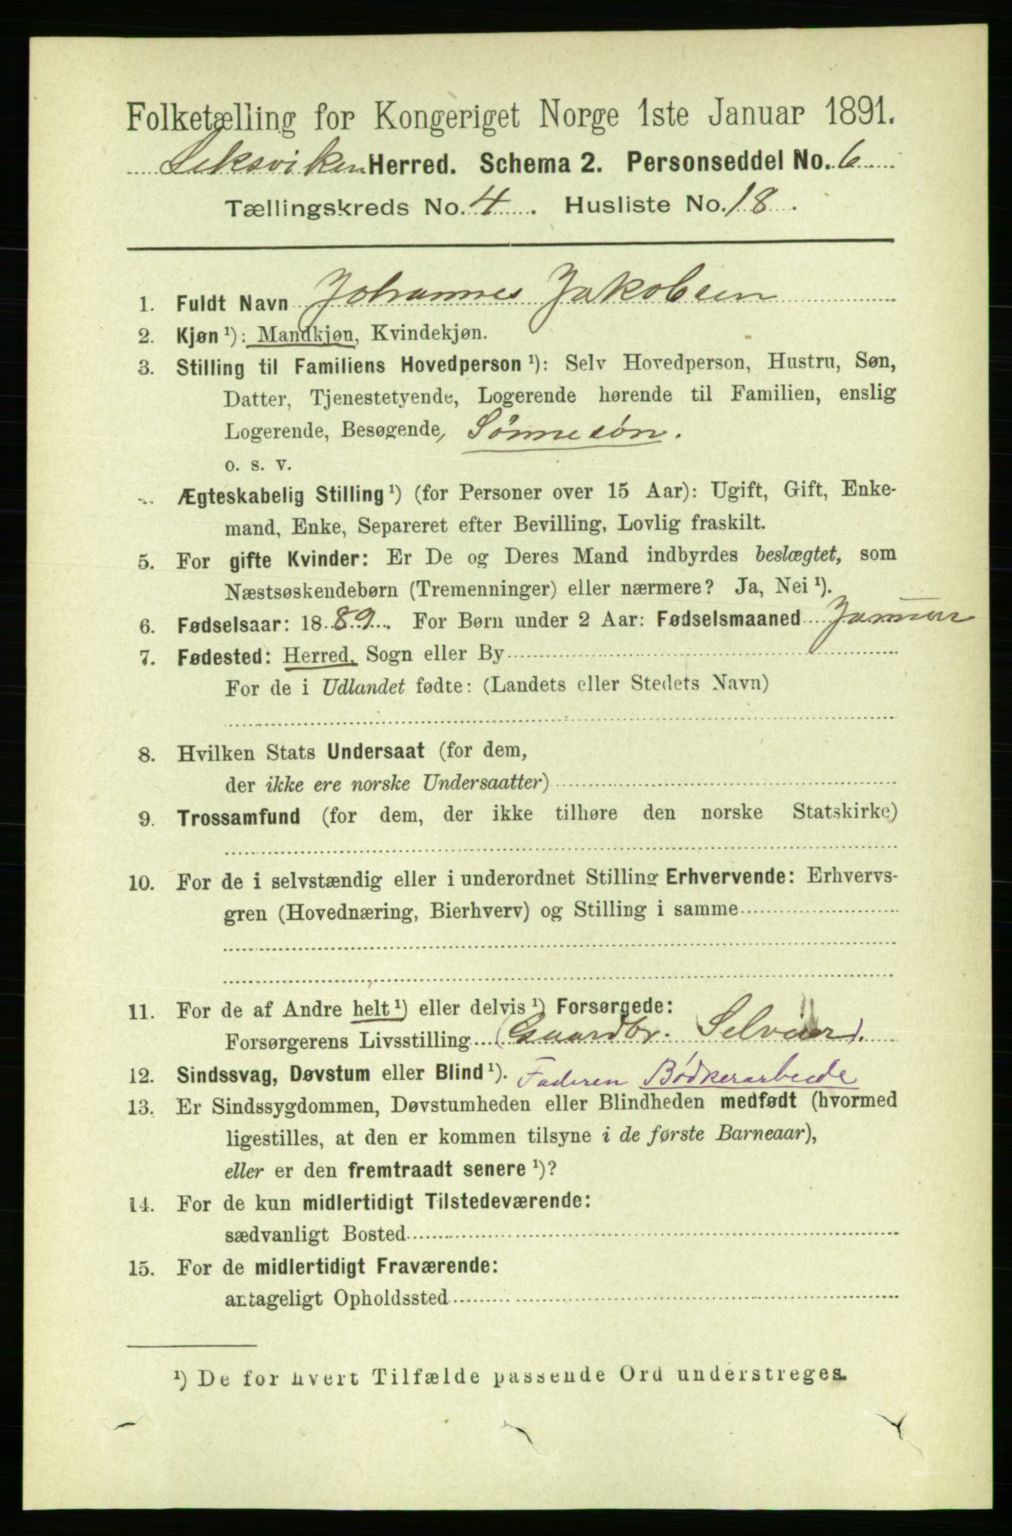 Folketælling for Kongeriget Norge 1ste Januar 1891.
Leksviken Herred. Schema 2. Personseddel No. 6
Tællingskreds No. 4. Husliste No. 18.
1. Fuldt Navn Johannes Jakobsen
2. Kjøn ¹): Mandkjøn, Kvindekjøn.
3. Stilling til Familiens Hovedperson ¹): Selv Hovedperson, Hustru, Søn,
Datter, Tjenestetyende, Logerende hørende til Familien, enslig
Logerende, Besøgende, Sønnesøn.
o. s. v.
Ægteskabelig Stilling ¹) (for Personer over 15 Aar): Ugift, Gift, Enke-
mand, Enke, Separeret efter Bevilling, Lovlig fraskilt.
5. For gifte Kvinder: Er De og Deres Mand indbyrdes beslægtet, som
Næstsøskendebørn (Tremenninger) eller nærmere? Ja, Nei ¹).
6. Fødselsaar: 1889. For Børn under 2 Aar: Fødselsmaaned Januar
7. Fødested: Herred, Sogn eller By
For de i Udlandet fødte: (Landets eller Stedets Navn)
8. Hvilken Stats Undersaat (for dem,
der ikke ere norske Undersaatter)
9. Trossamfund (for dem, der ikke tilhøre den norske Statskirke)
10. For de i selvstændig eller i underordnet Stilling Erhvervende: Erhvervs-
gren (Hovednæring, Bierhverv) og Stilling i samme
11. For de af Andre helt ¹) eller delvis ¹) Forsørgede:
Forsørgerens Livsstilling (Gaardbr. Selveier).
12. Sindssvag, Døvstum eller Blind ¹). Faderen Bødkerarbeide
13. Er Sindssygdommen, Døvstumheden eller Blindheden medfødt (hvormed
ligestilles, at den er kommen tilsyne i de første Barneaar),
eller er den fremtraadt senere ¹)?
14. For de kun midlertidigt Tilstedeværende:
sædvanligt Bosted
15. For de midlertidigt Fraværende:
antageligt Opholdssted
¹) De for hvert Tilfælde passende Ord understreges.